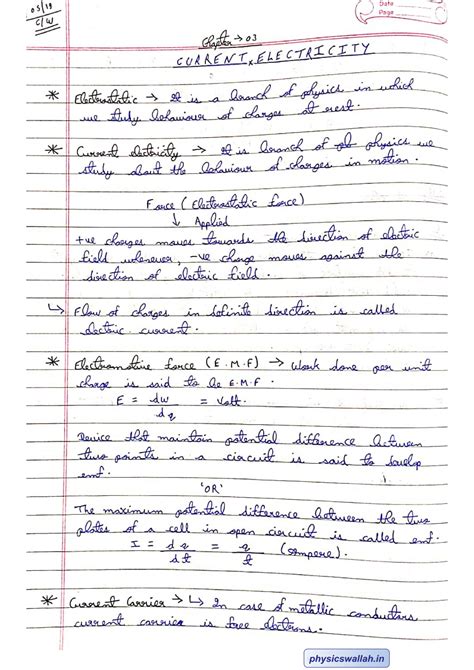 05/19
C/W
Date
Page
Chapter → 03
CURRENT ELECTRICITY
* Electrostatic → It is a branch of physics in which
we study behaviour of charges at rest.
* Current electricity → It is branch of physics we
study about the behaviour of charges in motion.
Force (Electrostatic force)
↓ Applied
+ve charges moves towards the direction of electric
field whenever, -ve charge moves against the
direction of electric field.
↳ Flow of charges in definite direction is called
electric current.
* Electromotive force (E.M.F) → Work done per unit
charge is said to be E.M.F.
E = dw = Volt.
dq
Device that maintain potential difference between
two points in a circuit is said to develop
emf.
'OR'
The maximum potential difference between the two
plates of a cell in open circuit is called emf.
I = dq = q (ampere).
dt t
* Current Carrier → ↳ In case of metallic conductors
current carrier is free electrons.
physicswallah.in